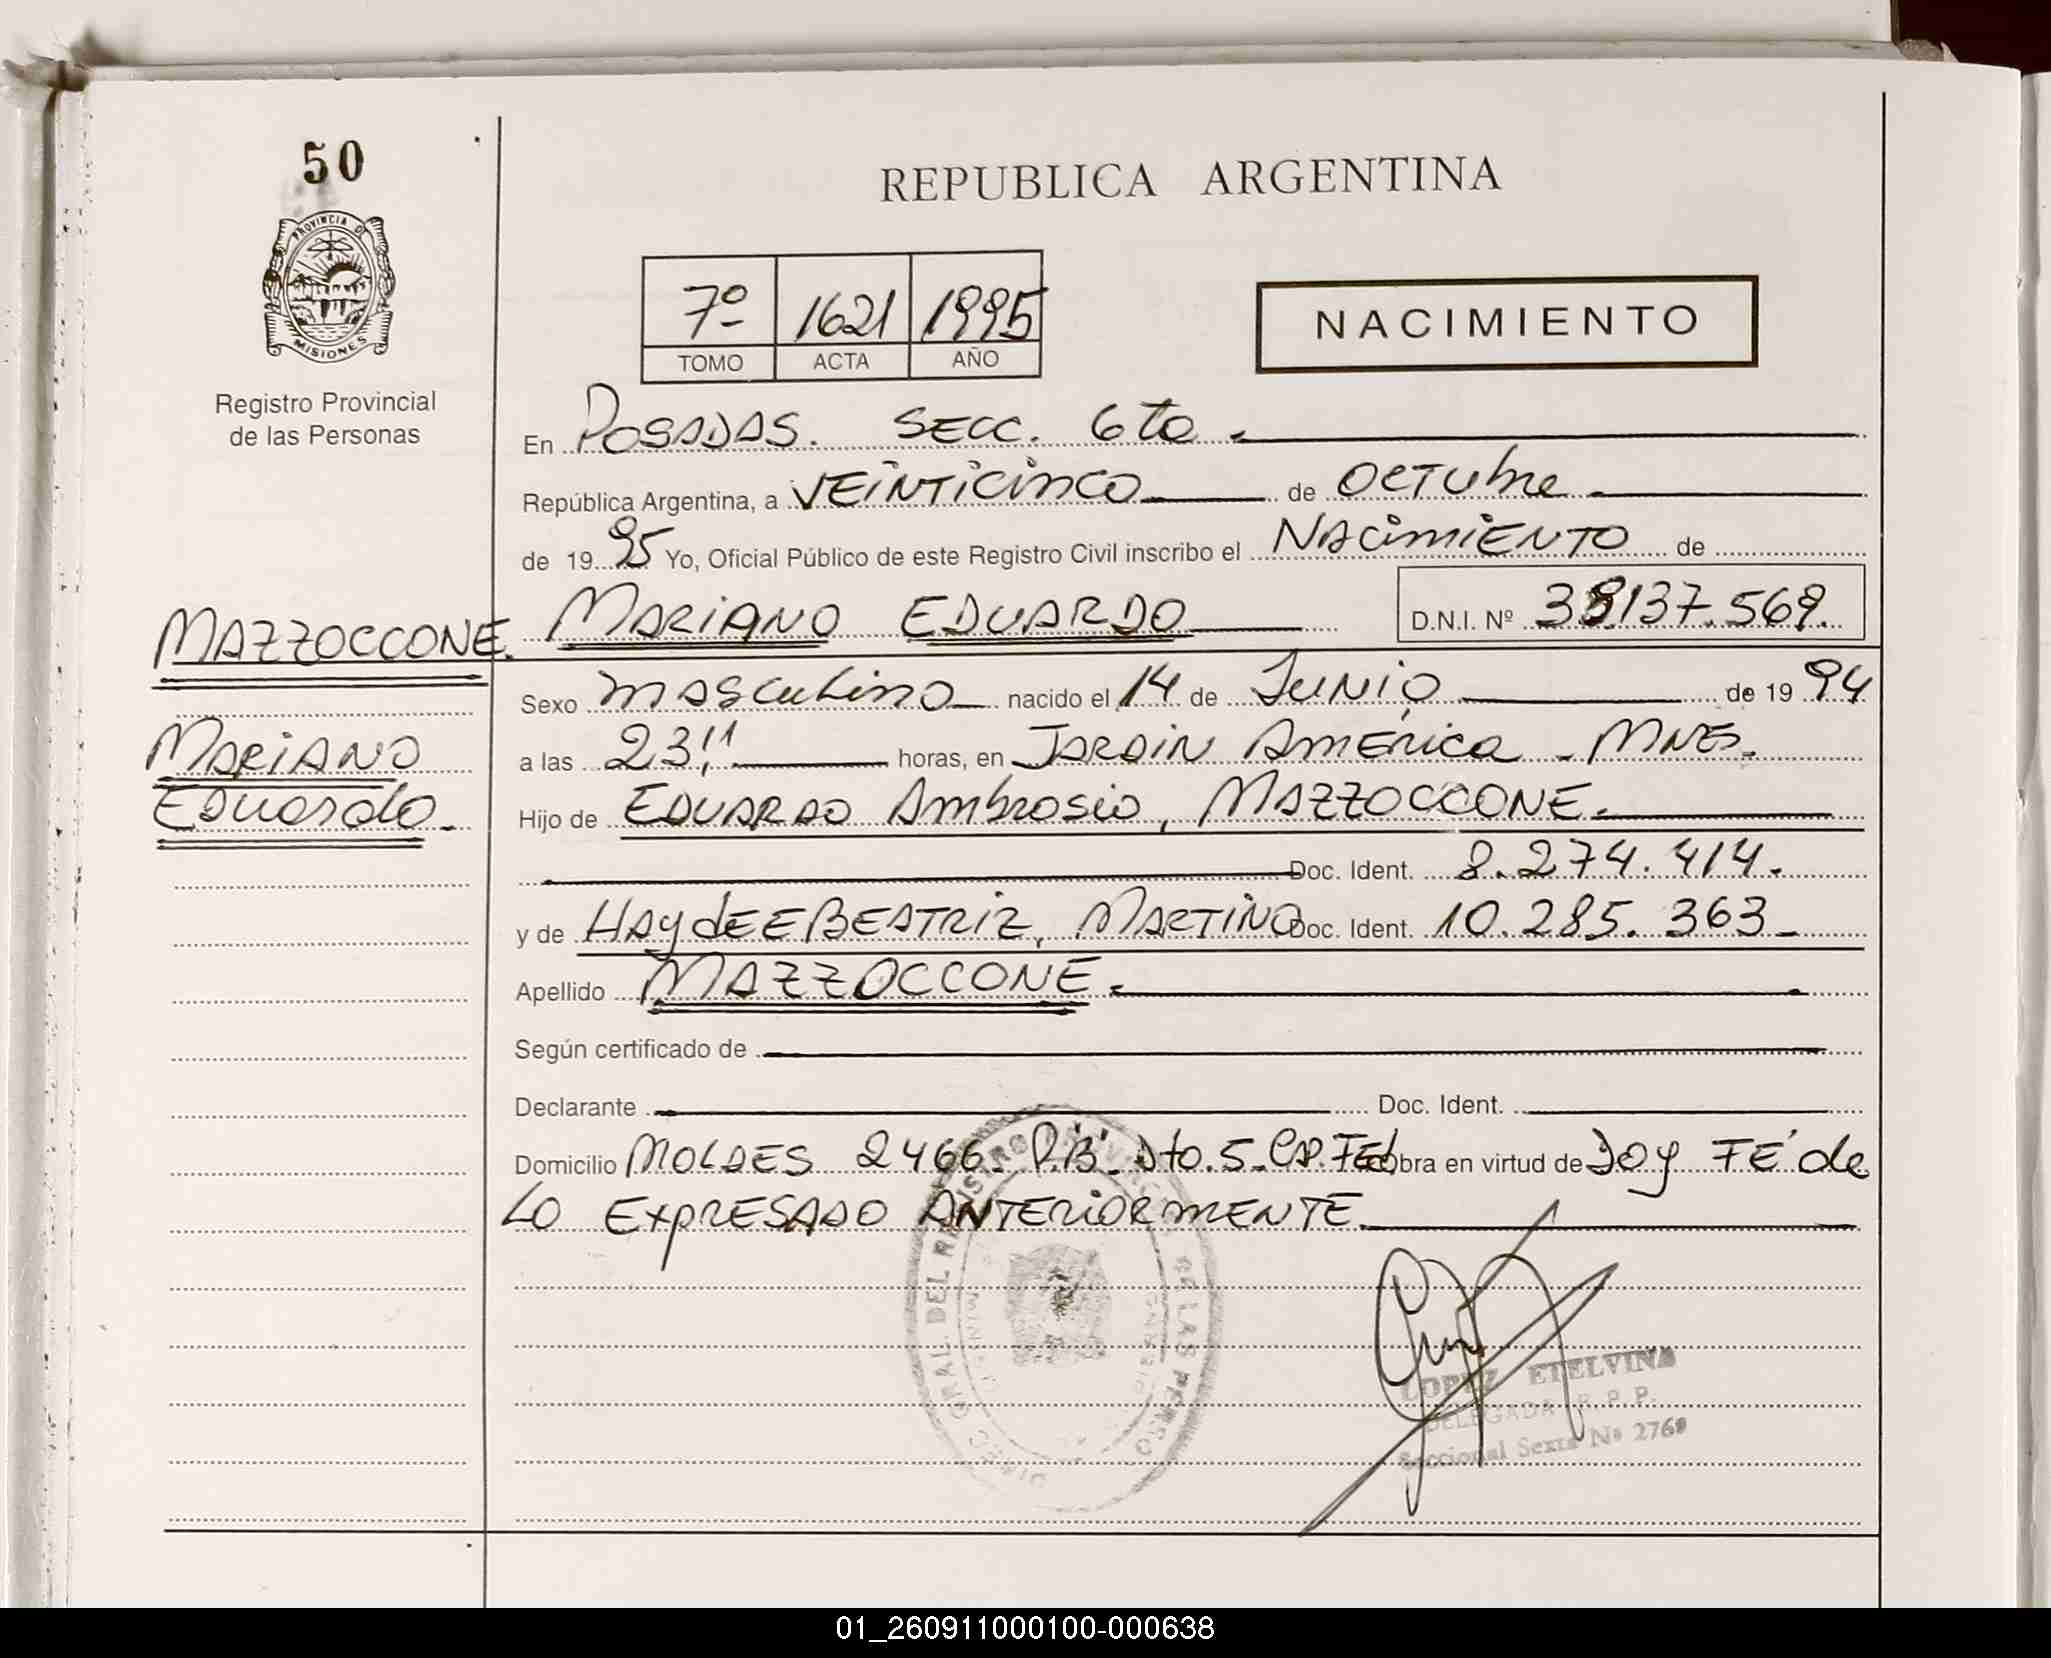 50
PROVINCIA DE
MISIONES
Registro Provincial
de las Personas
REPUBLICA ARGENTINA
7º 1621 1995
TOMO ACTA AÑO
NACIMIENTO
En POSADAS. SECC. 6ta.
República Argentina, a VEINTICINCO de OCTUBRE.
de 1995 Yo, Oficial Público de este Registro Civil inscribo el NACIMIENTO de
MAZZOCCONE. MARIANO EDUARDO D.N.I. Nº 137.569.
Sexo masculino nacido el 14 de JUNIO de 1994
MARIANO
a las 23,11 horas, en JARDIN AMERICA - MNES.
EDUARDO.
Hijo de EDUARDO Ambrosio, MAZZOCCONE.
Doc. Ident. 8.274.414.
y de HAYDEE BEATRIZ, MARTINO Doc. Ident. 10.285.363-
Apellido MAZZOCCONE.
Según certificado de
Declarante Doc. Ident.
Domicilio MOLDES 2466- P."B". Dto. 5- Cap. Fed. obra en virtud de Doy FE de
LO EXPRESADO ANTERIORMENTE.
DIREC. GRAL. DEL REGISTRO PROVINCIAL DE LAS PERSO
LOPEZ ETELVINA
DELEGADA R. P. P.
Seccional Sexta Nº 2769
01_260911000100-000638